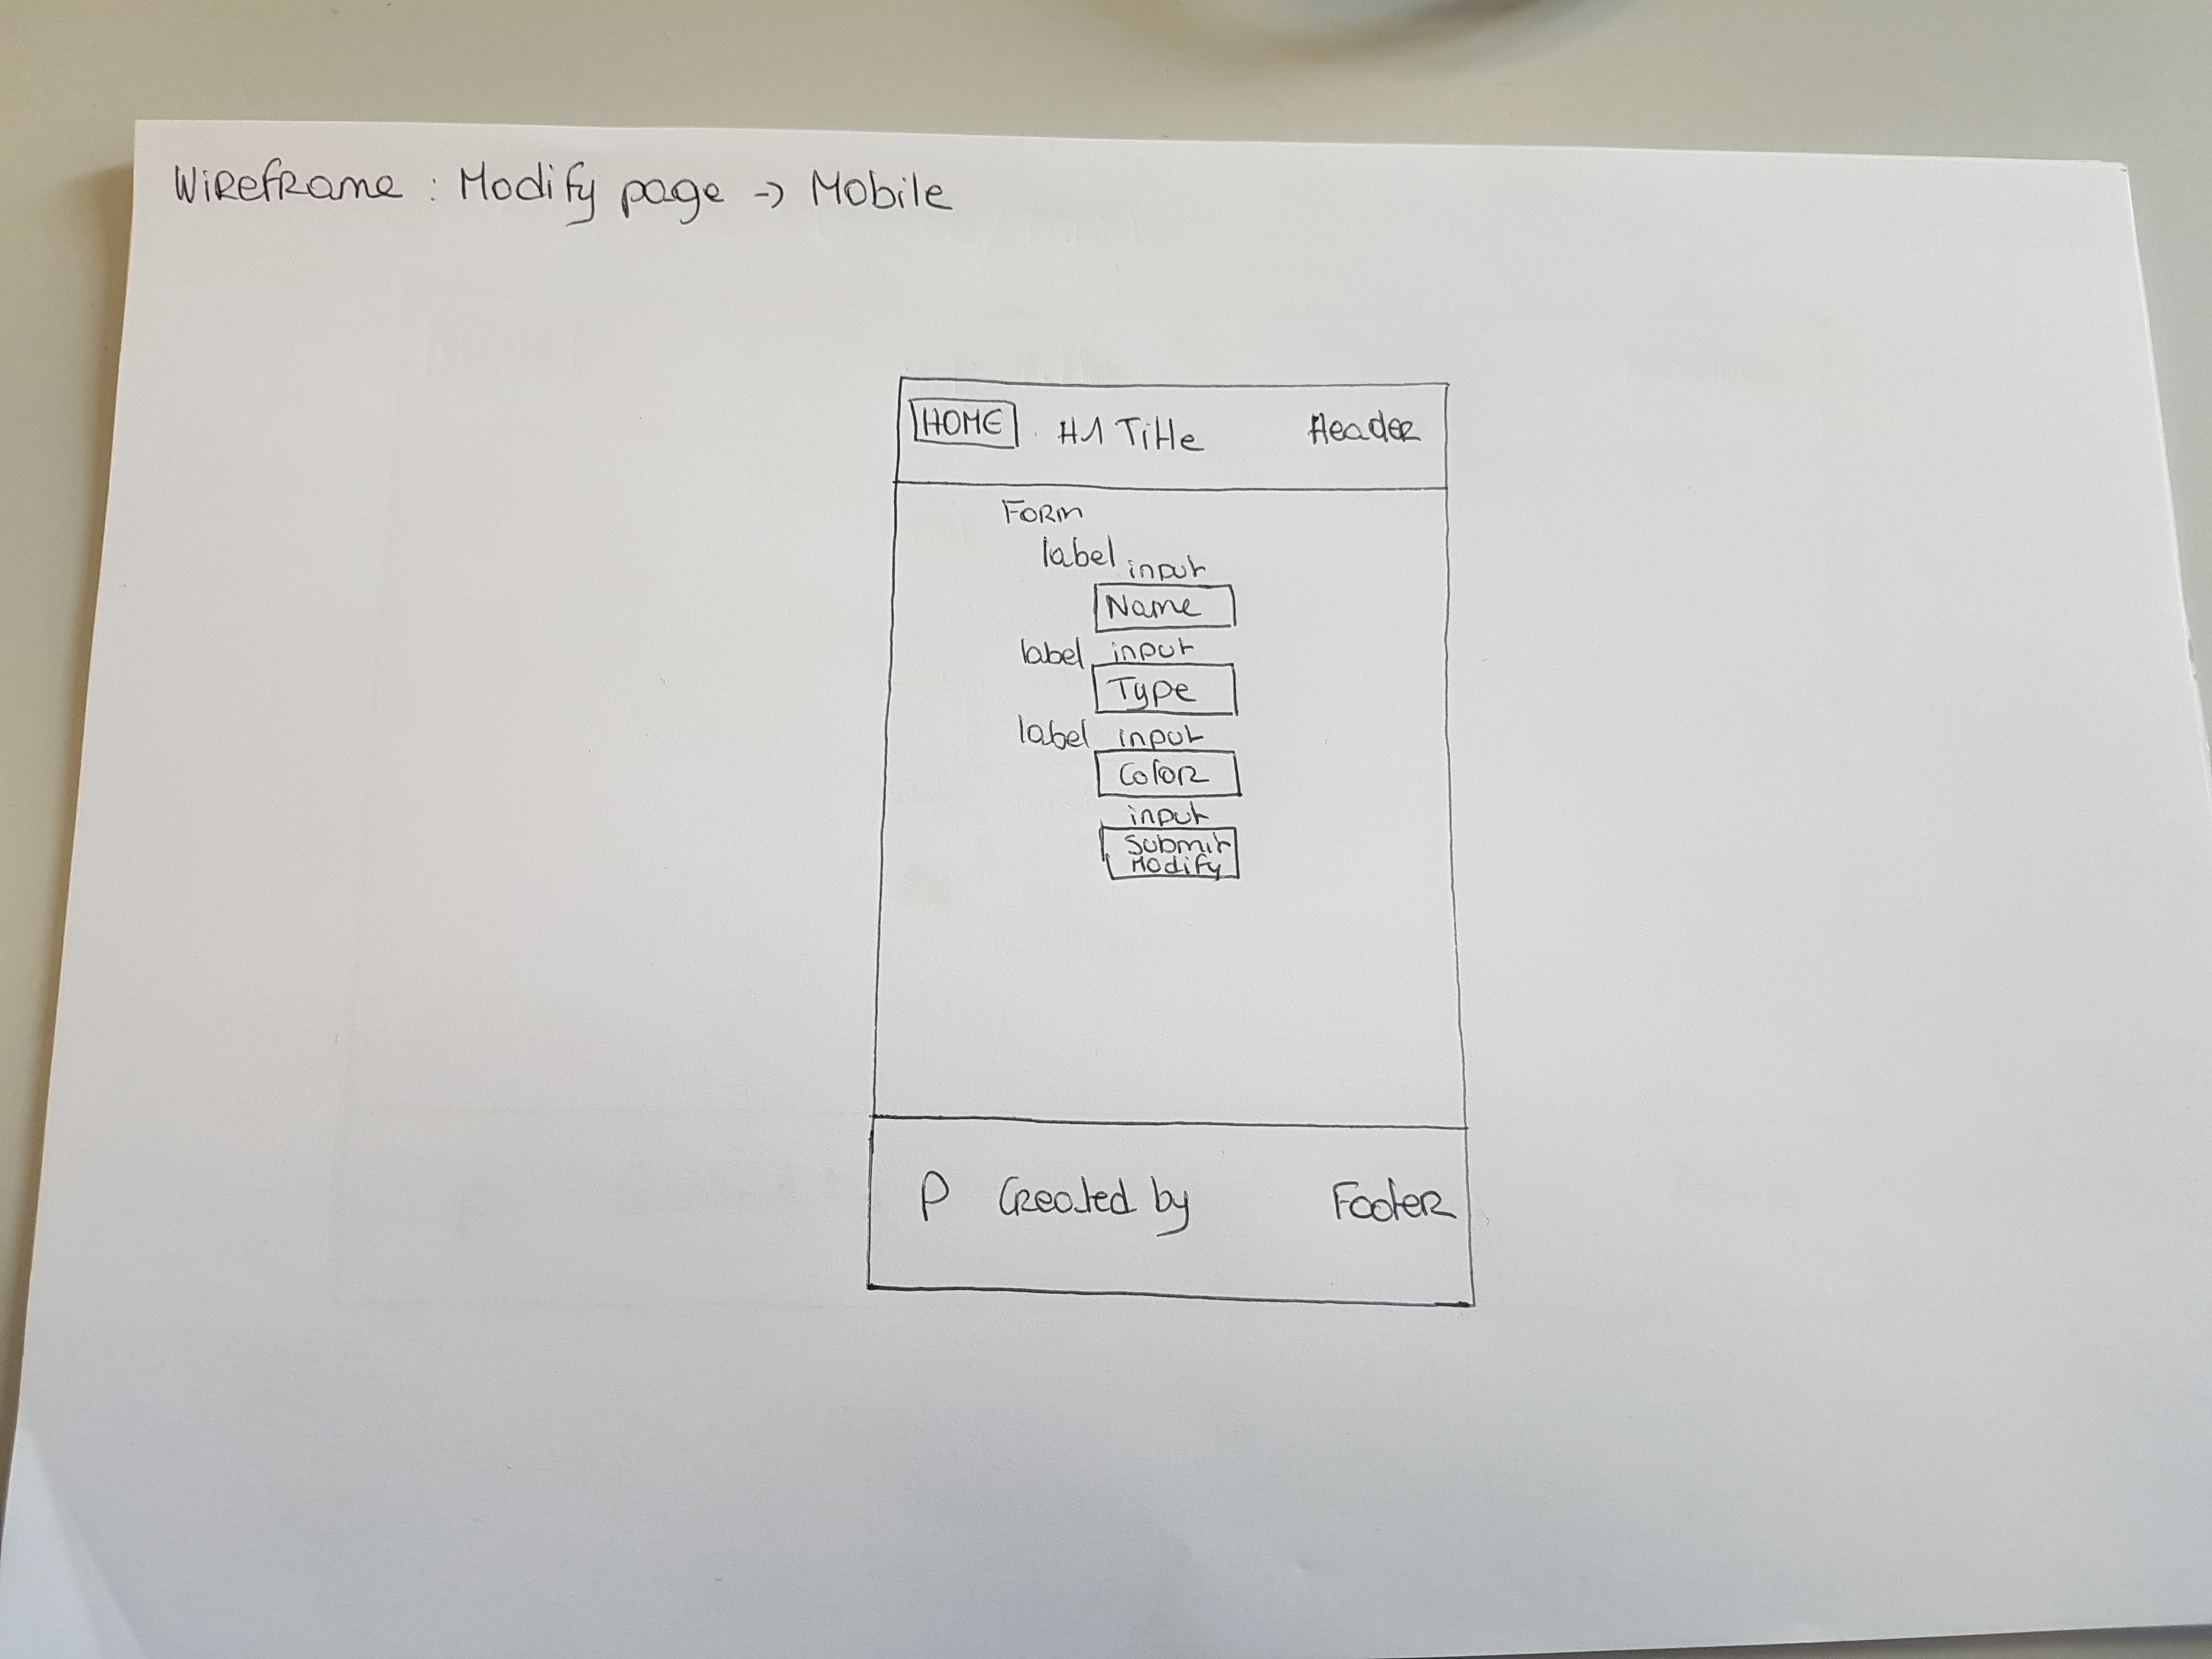 Wireframe : Modify page -> Mobile
HOME H1 Title Header
Form
label input
Name
label input
Type
label input
Color
input
Submit
Modify
P Created by Footer